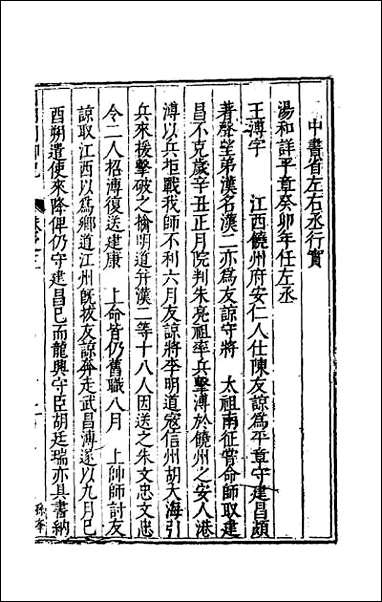 中書省左右丞行實
湯和詳平章癸卯年任左丞
王溥字　江西饒州府安仁人仕陳友諒爲平章守建昌頗
著聲望弟漢名漢二亦爲友諒守將　太祖南征嘗命師取建
昌不克歲辛丑正月院判朱亮祖率兵擊溥於饒州之安人港
溥以兵拒戰我師不利六月友諒將李明道寇信州胡大海引
兵來援擊破之擒明道并漢二等十八人因送之朱文忠文忠
令二人招溥復送建康　上命皆仍舊職八月　上帥師討友
諒取江西以爲鄉道江州旣拔友諒奔走武昌溥遂以九月巳
酉朔遣使來降俾仍守建昌巳而龍興守臣胡廷瑞亦具書納